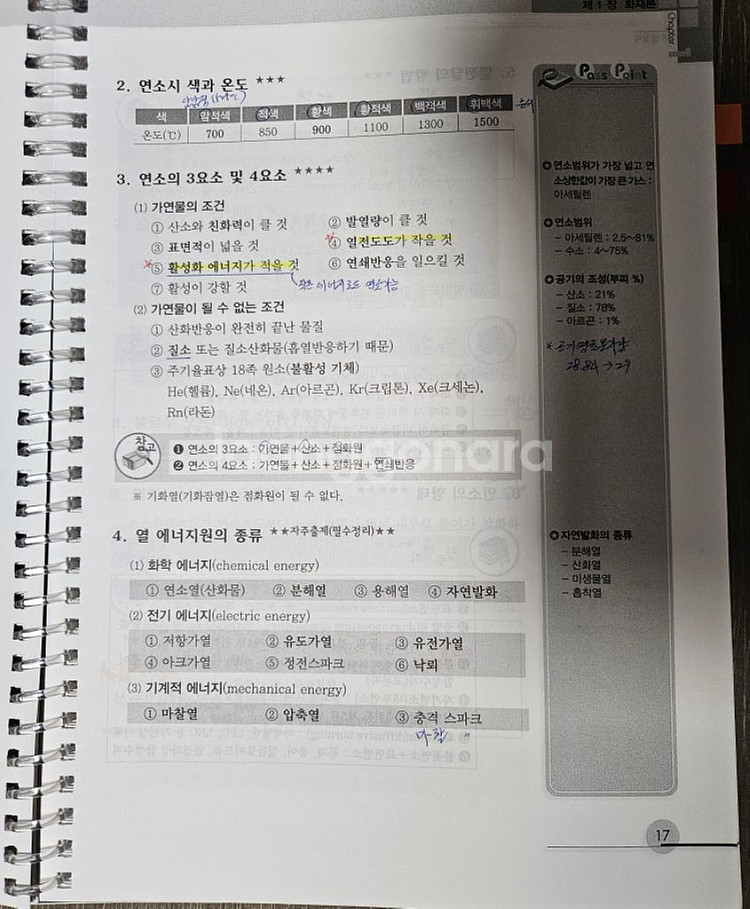 제 1 장 화재론
Chapter 1
2. 연소시 색과 온도 ★★★
색 암적색 적색 황색 황적색 백적색 휘백색
온도(℃) 700 850 900 1100 1300 1500
3. 연소의 3요소 및 4요소 ★★★★
(1) 가연물의 조건
① 산소와 친화력이 클 것 ② 발열량이 클 것
③ 표면적이 넓을 것 ④ 열전도도가 작을 것
⑤ 활성화 에너지가 적을 것 ⑥ 연쇄반응을 일으킬 것
⑦ 활성이 강할 것
(2) 가연물이 될 수 없는 조건
① 산화반응이 완전히 끝난 물질
② 질소 또는 질소산화물(흡열반응하기 때문)
③ 주기율표상 18족 원소(불활성 기체)
He(헬륨), Ne(네온), Ar(아르곤), Kr(크립톤), Xe(크세논),
Rn(라돈)
참고
❶ 연소의 3요소 : 가연물+산소+점화원
❷ 연소의 4요소 : 가연물+산소+점화원+연쇄반응
※ 기화열(기화잠열)은 점화원이 될 수 없다.
4. 열 에너지원의 종류 ★★자주출제(필수정리)★★
(1) 화학 에너지(chemical energy)
① 연소열(산화물) ② 분해열 ③ 용해열 ④ 자연발화
(2) 전기 에너지(electric energy)
① 저항가열 ② 유도가열 ③ 유전가열
④ 아크가열 ⑤ 정전스파크 ⑥ 낙뢰
(3) 기계적 에너지(mechanical energy)
① 마찰열 ② 압축열 ③ 충격 스파크
마찰 〃
Pass Point
연소범위가 가장 넓고 연
소상한값이 가장 큰 가스 :
아세틸렌
연소범위
- 아세틸렌 : 2.5~81%
- 수소 : 4~75%
공기의 조성(부피 %)
- 산소 : 21%
- 질소 : 78%
- 아르곤 : 1%
* 공기평균분자량
28.84 → 29
자연발화의 종류
- 분해열
- 산화열
- 미생물열
- 흡착열
17